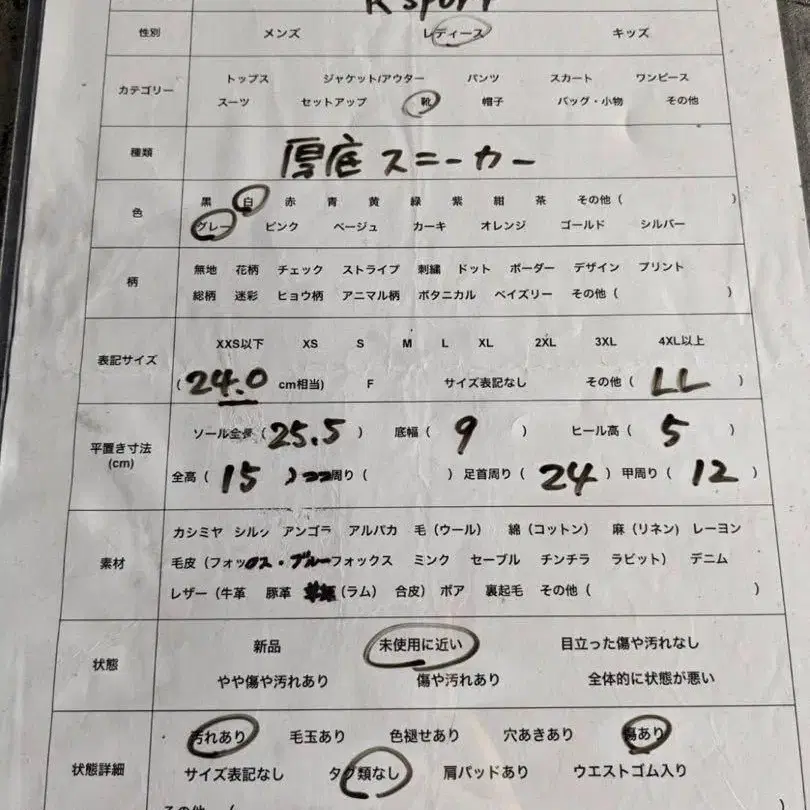 K sport
性別 メンズ レディース キッズ
カテゴリー トップス ジャケット/アウター パンツ スカート ワンピース
スーツ セットアップ 靴 帽子 バッグ・小物 その他
種類 厚底スニーカー
色 黒 白 赤 青 黄 緑 紫 紺 茶 その他( )
グレー ピンク ベージュ カーキ オレンジ ゴールド シルバー
柄 無地 花柄 チェック ストライプ 刺繍 ドット ボーダー デザイン プリント
総柄 迷彩 ヒョウ柄 アニマル柄 ボタニカル ペイズリー その他( )
表記サイズ XXS以下 XS S M L XL 2XL 3XL 4XL以上
(24.0 cm相当) F サイズ表記なし その他( LL )
平置き寸法 (cm) ソール全長( 25.5 ) 底幅( 9 ) ヒール高( 5 )
全高( 15 ) 周り( ) 足首周り( 24 ) 甲周り( 12 )
素材 カシミヤ シルク アンゴラ アルパカ 毛(ウール) 綿(コットン) 麻(リネン) レーヨン
毛皮(フォックス・ブルーフォックス ミンク セーブル チンチラ ラビット) デニム
レザー(牛革 豚革 (ラム) 合皮) ボア 裏起毛 その他( )
状態 新品 未使用に近い 目立った傷や汚れなし
やや傷や汚れあり 傷や汚れあり 全体的に状態が悪い
状態詳細 汚れあり 毛玉あり 色褪せあり 穴あきあり 傷あり
サイズ表記なし タグ類なし 肩パッドあり ウエストゴム入り
その他 ( )